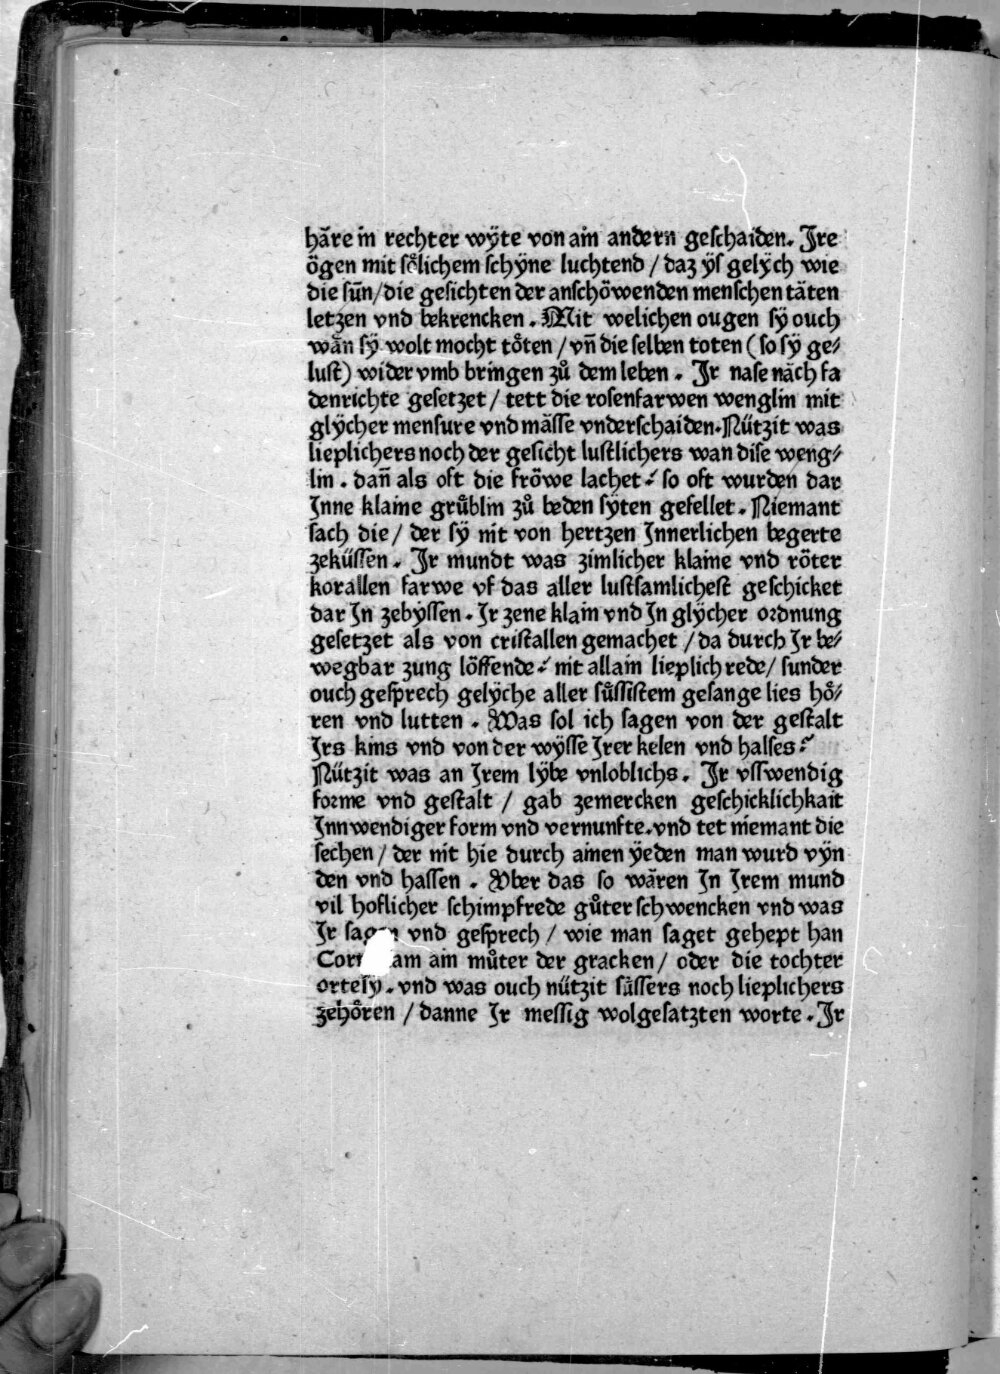 hāre in rechter wÿte von ain andern geschaiden. Jre
ögen mit sȯͤlichem schÿne luchtend / daz ÿs gelÿch wie
die sūn/die gesichten der anschöwenden menschen täten
letzen vnd bekrencken. Mit welichen ougen sÿ ouch
wān sÿ wolt mocht töten / vn̄ die selben toten (so sÿ ge⸗
lust) wider vmb bringen zů dem leben. Jr nase nāch fa
denrichte gesetzet / tett die rosenfarwen wenglin mit
glÿcher mensure vnd māsse vnderschaiden. Nützit was
lieplichers noch der gesicht lustlichers wan dise weng⸗
lin. dan̄ als oft die fröwe lachet⸗ so oft wurden dar
Jnne klaine grůblin zů beden sÿten gefellet. Niemant
sach die / der sÿ nit von hertzen Jnnerlichen begerte
zeküssen. Jr mundt was zimlicher klaine vnd röter
korallen farwe vf das aller lustsamlichest geschicket
dar Jn zebÿssen. Jr zene klain vnd Jn glÿcher ordnung
gesetzet als von cristallen gemachet / da durch Jr be⸗
wegbar zung löffende⸗ nit allain lieplich rede/ sunder
ouch gesprech gelÿche aller sůssistem gesange lies hö⸗
ren vnd lutten. Was sol ich sagen von der gestalt
Jrs kins vnd von der wÿsse Jrer kelen vnd halses⸗
Nützit was an Jrem lÿbe vnloblichs. Jr vsswendig
forme vnd gestalt / gab zemercken geschicklichkait
Jnnwendiger form vnd vernunfte. vnd tet niemant die
sechen / der nit hie durch ainen ÿeden man wurd vÿn
den vnd hassen. Vber das so wāren Jn Jrem mund
vil hoflicher schimpfrede gůter schwencken vnd was
Jr sagen vnd gesprech / wie man saget gehept han
am ain můter der gracken/ oder die tochter
ortesÿ. vnd was ouch nützit sůssers noch lieplichers
zehören / danne Jr messig wolgesatzten worte. Jr